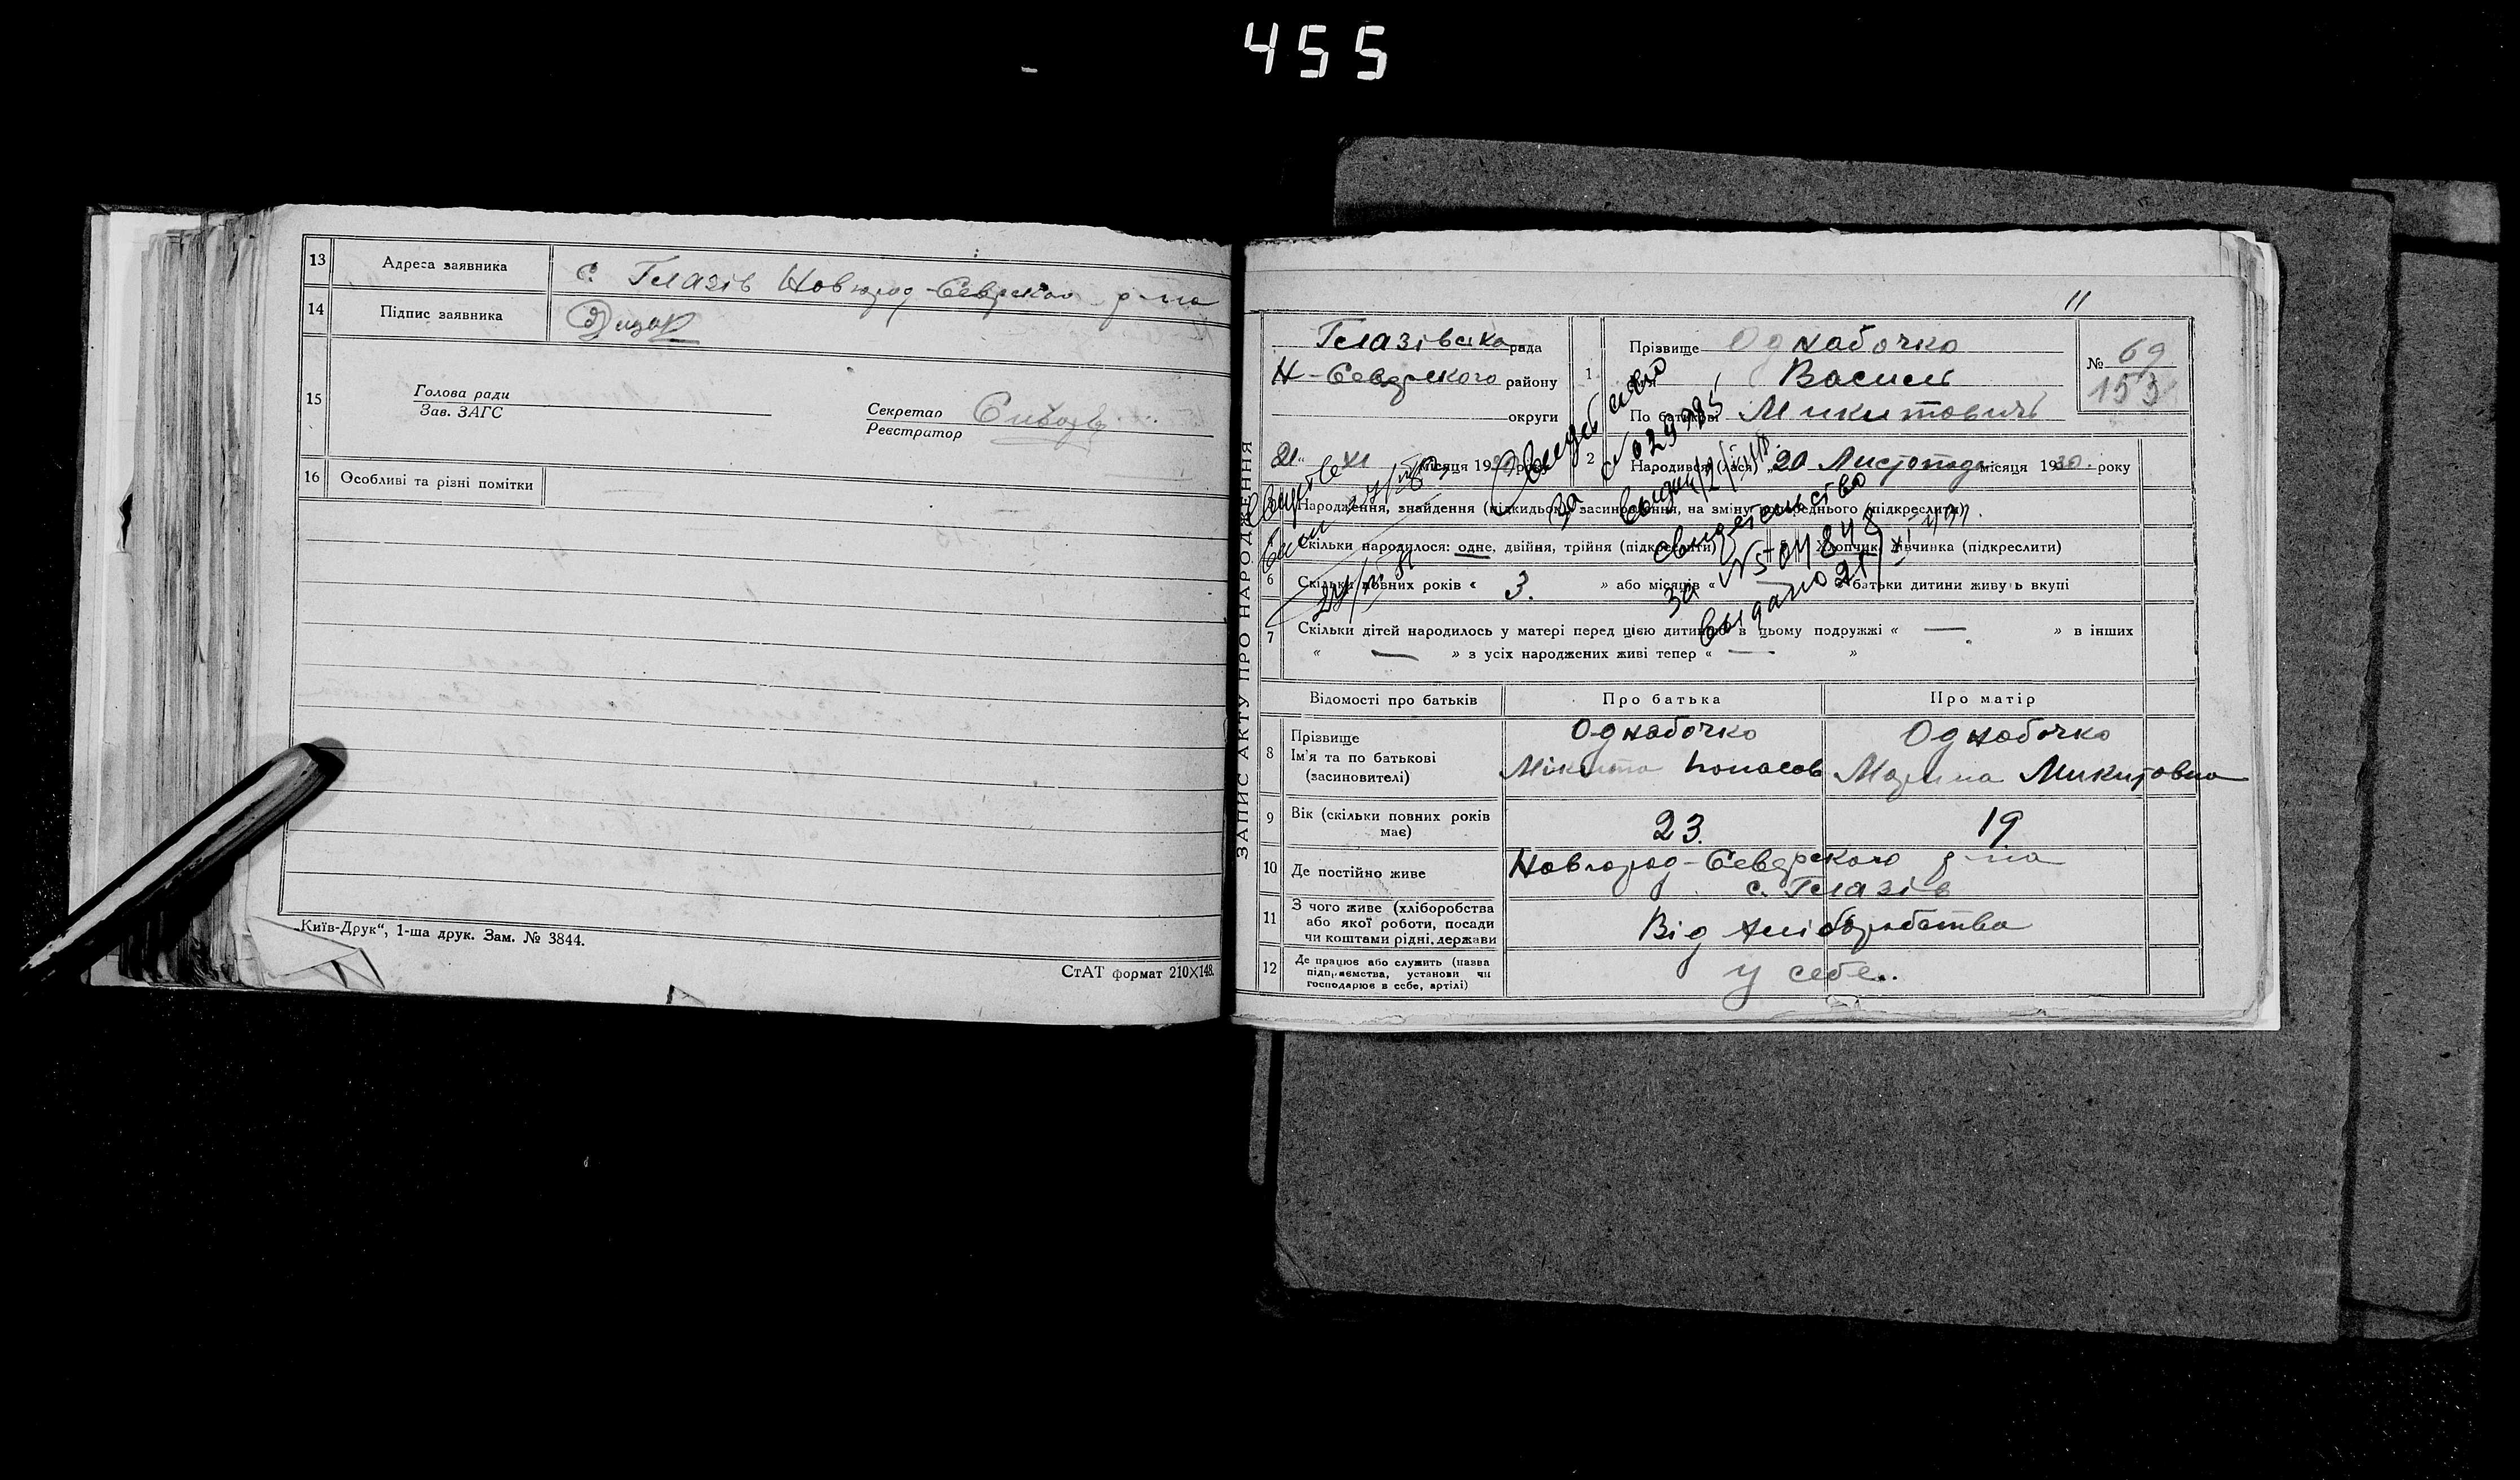 455
13 Адреса заявника с. Глазів Новгород-Сіверского р-на
14 Підпис заявника
15 Голова ради
Зав. ЗАГС
Секретар
Реєстратор
16 Особливі та різні помітки
„Київ-Друк“, 1-ша друк. Зам. № 3844.
СтАТ формат 210X148.
11
ЗАПИС АКТУ ПРО НАРОДЖЕННЯ
Глазівська рада
Н-Сіверского району
округи
1 Прізвище Однабочко
Василь
По батькові Микитович
№ 69
153
21 XI місяця 19 року
2 Народився (лася) „20 Листопада місяця 1930. року
свидетельство
№ 029985
Народження, знайдення (підкидьок) засиновлення, на зміну попереднього (підкреслити)
свидетельство
Скільки народилося: одне, двійня, трійня (підкреслити) Хлопчик, дівчинка (підкреслити)
№504848
выдано 21/XI
6 Скільки повних років « 3. » або місяців « батьки дитини живуть вкупі
7 Скільки дітей народилось у матері перед цією дитиною в цьому подружжі « — » в інших
« — » з усіх народжених живі тепер « — »
Відомості про батьків Про батька Про матір
8 Прізвище
Ім'я та по батькові
(засиновителі)
Однабочко
Мікита Понасов
Однабочко
Марина Микитовна
9 Вік (скільки повних років має) 23. 19.
10 Де постійно живе Новгород-Сіверского р-на
с. Глазів
11 З чого живе (хліборобства
або якої роботи, посади
чи коштами рідні, держави
Від хліборобства
12 Де працює або служить (назва
підприємства, установи чи
господарює в себе, артілі)
у себе.